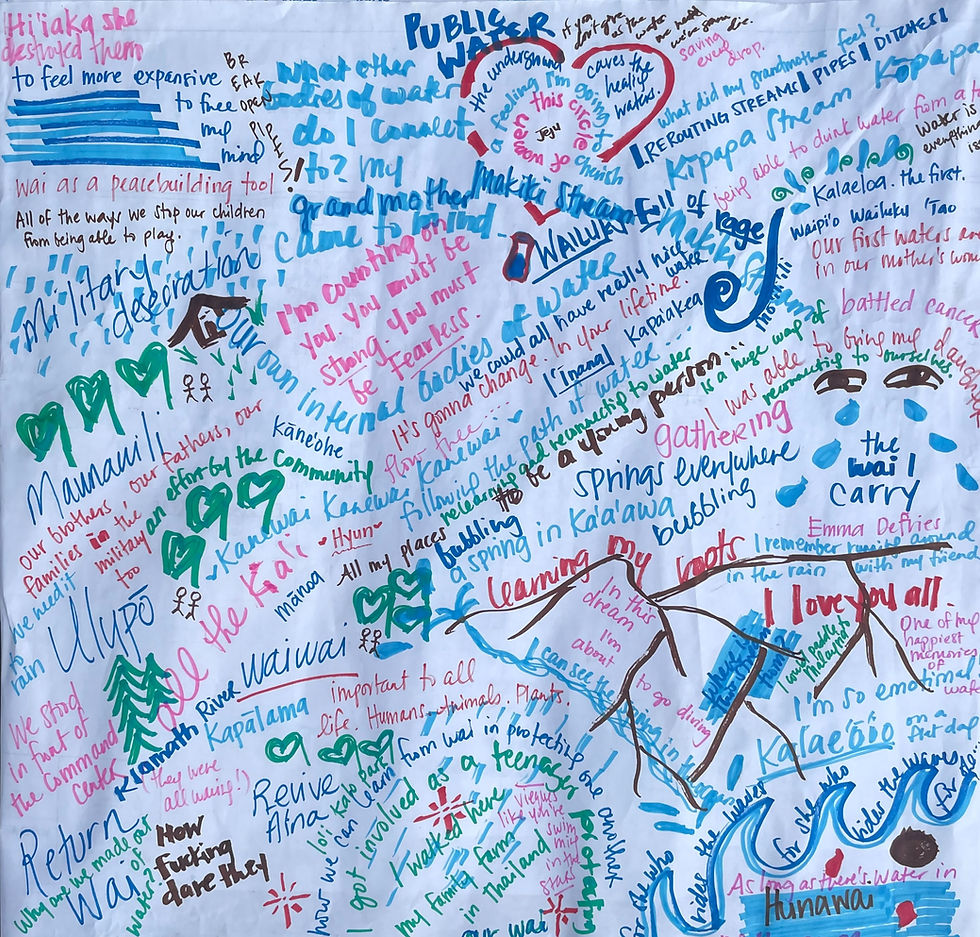 Hi'iaka she
destroyed them
to feel more expansive
to free
my
mind
BR
EAK
OPEN
PIPES!
wai as a peacebuilding tool
All of the ways we stop our children
from being able to play.
Military
desecration
PUBLIC
WATER
what other
bodies of water
do I connect
to? my
grandmother
came to mind
the underground caves the healing waters.
a feeling I'm going to cherish
this circle of women
Jeju
saving
every
drop.
what did my grandmother feel?
REROUTING STREAMS | PIPES | DITCHES |
Kīpapa Stream Kīpapa
being able to drink water from a
water is
everything
Makiki Stream
full of rage
WAILUA
Makiki Stream
Kalaeloa. the first.
Waipi'o Wailuku 'Īao
our first waters are
in our mother's womb
battled cancer
I was able to bring my daughter
I'm counting on
you. You must be
strong. You must
be fearless.
our own internal bodies of water
we could all have really nice water
It's gonna change. In your lifetime.
flow free...
Kapaakea
Kāne'ohe
Kanewai Kanewai Kanewai
following the path of water...
relearning and reconnecting to water
is a huge way of
reconnecting to ourselves.
to be a young person...
gathering
springs everywhere
bubbling
bubbling
a spring in Ka'a'awa
the
wai I
carry
Emma Defries
I remember running around
in the rain with my friend
Maunawili
our brothers, our fathers, our
families in the
military
too
an effort by the community
we need it
to
rain
Ulupō
all the Ka'i
Hyun
mānoa
All my places
learning my roots
I love you all.
in this
dream
I'm
about
to go diving
I can see the
One of my
happiest
memories
of
I'm so emotional
Kalae'ō'iō
on a
flat day
waiwai
important to all
life. Humans. Animals. Plants.
We stood
in front of
the command
center
Klamath River
(they were
all waiting!)
Kapālama
Revive
'Āina
lo'i kalo
how we can learn from wai in protecting one another
I got involved as a teenager
protecting
I walked here
my family farm
in Thailand
Vieques
like you're
swimming
in the
stars
our wai
Return
Wai
Why are we made of our
waters?
How
fucking
dare they
for she who rides the waves
As long as there's water in
Hunawai